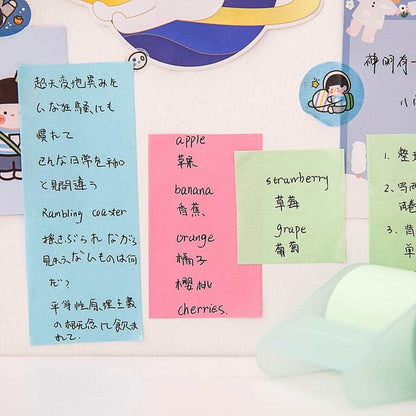 超天変地異みた
いな狂騒にも
慣れて
こんな日常を平和
と見間違う
Rambling coaster
揺さぶられながら
見失えないものは何
だ?
平等性原理主義
の概念に飲ま
れて.
apple
苹果
banana
香蕉
orange
橘子
樱桃
cherries.
strawberry
草莓
grape
葡萄
神明有一
小
1. 整
2. 写两
3. 背
单